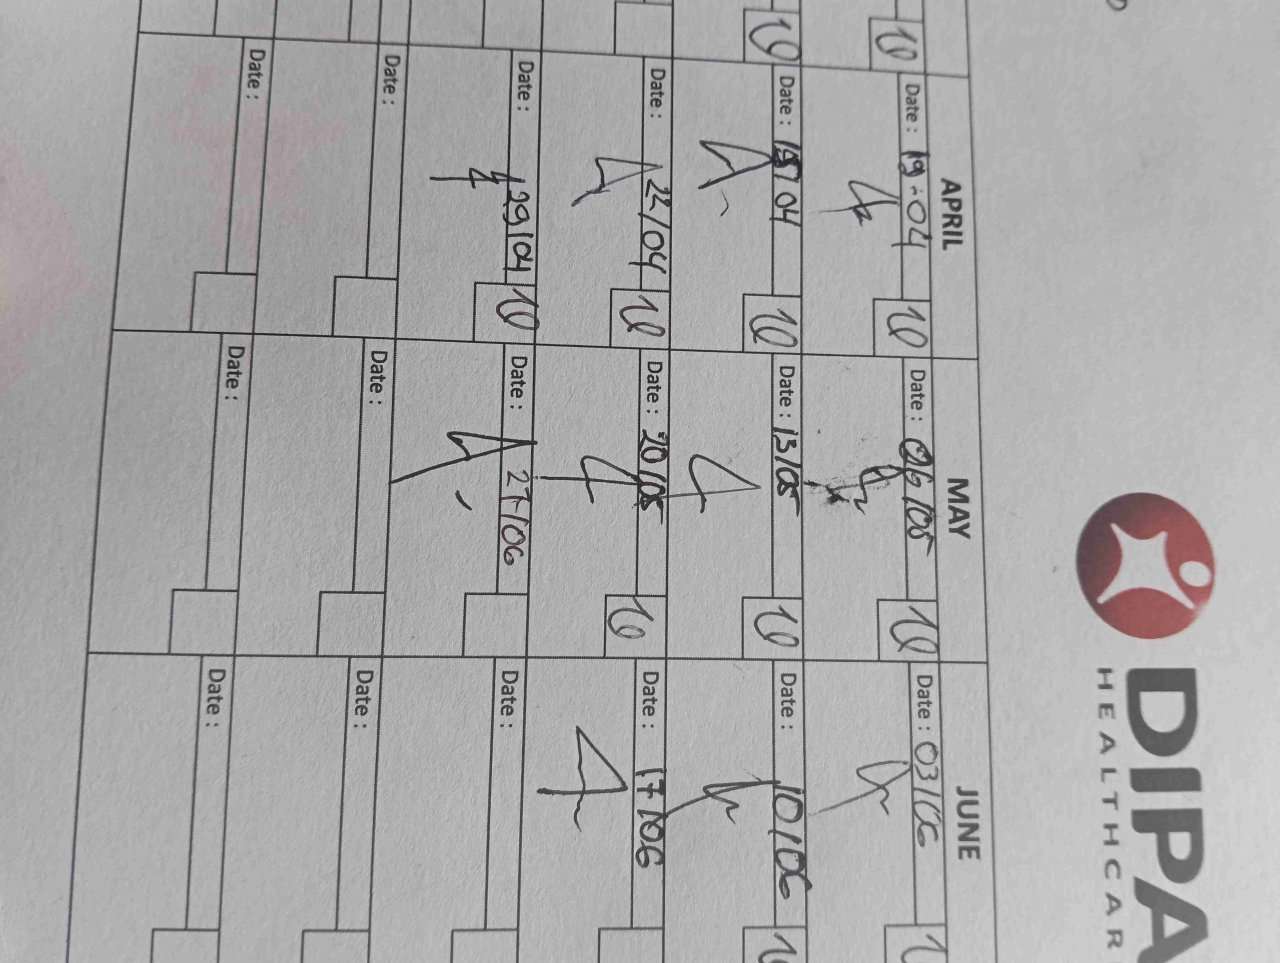 DIPA
HEALTHCAR
APRIL MAY JUNE
10 Date : 10 Date : 06/05 10 Date : 03/06
10 Date : 15/04 10 Date : 13/05 10 Date : 10/06
Date : 22/04 10 Date : 20/05 10 Date : 17/06
Date : 29/04 10 Date : 27/06 Date :
Date : Date : Date :
Date : Date : Date :